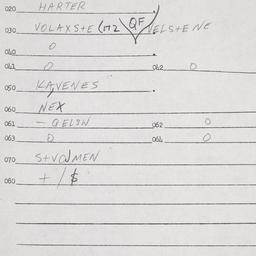 020 HARTER
030 VOLAXS+E (M2 QF VELS+E NE
040 O
041 O 042 O
050 KAVENES
060 NEX
061 - GELSN 062 O
063 O 064 O
070 S+VOJMEN
080 + / $